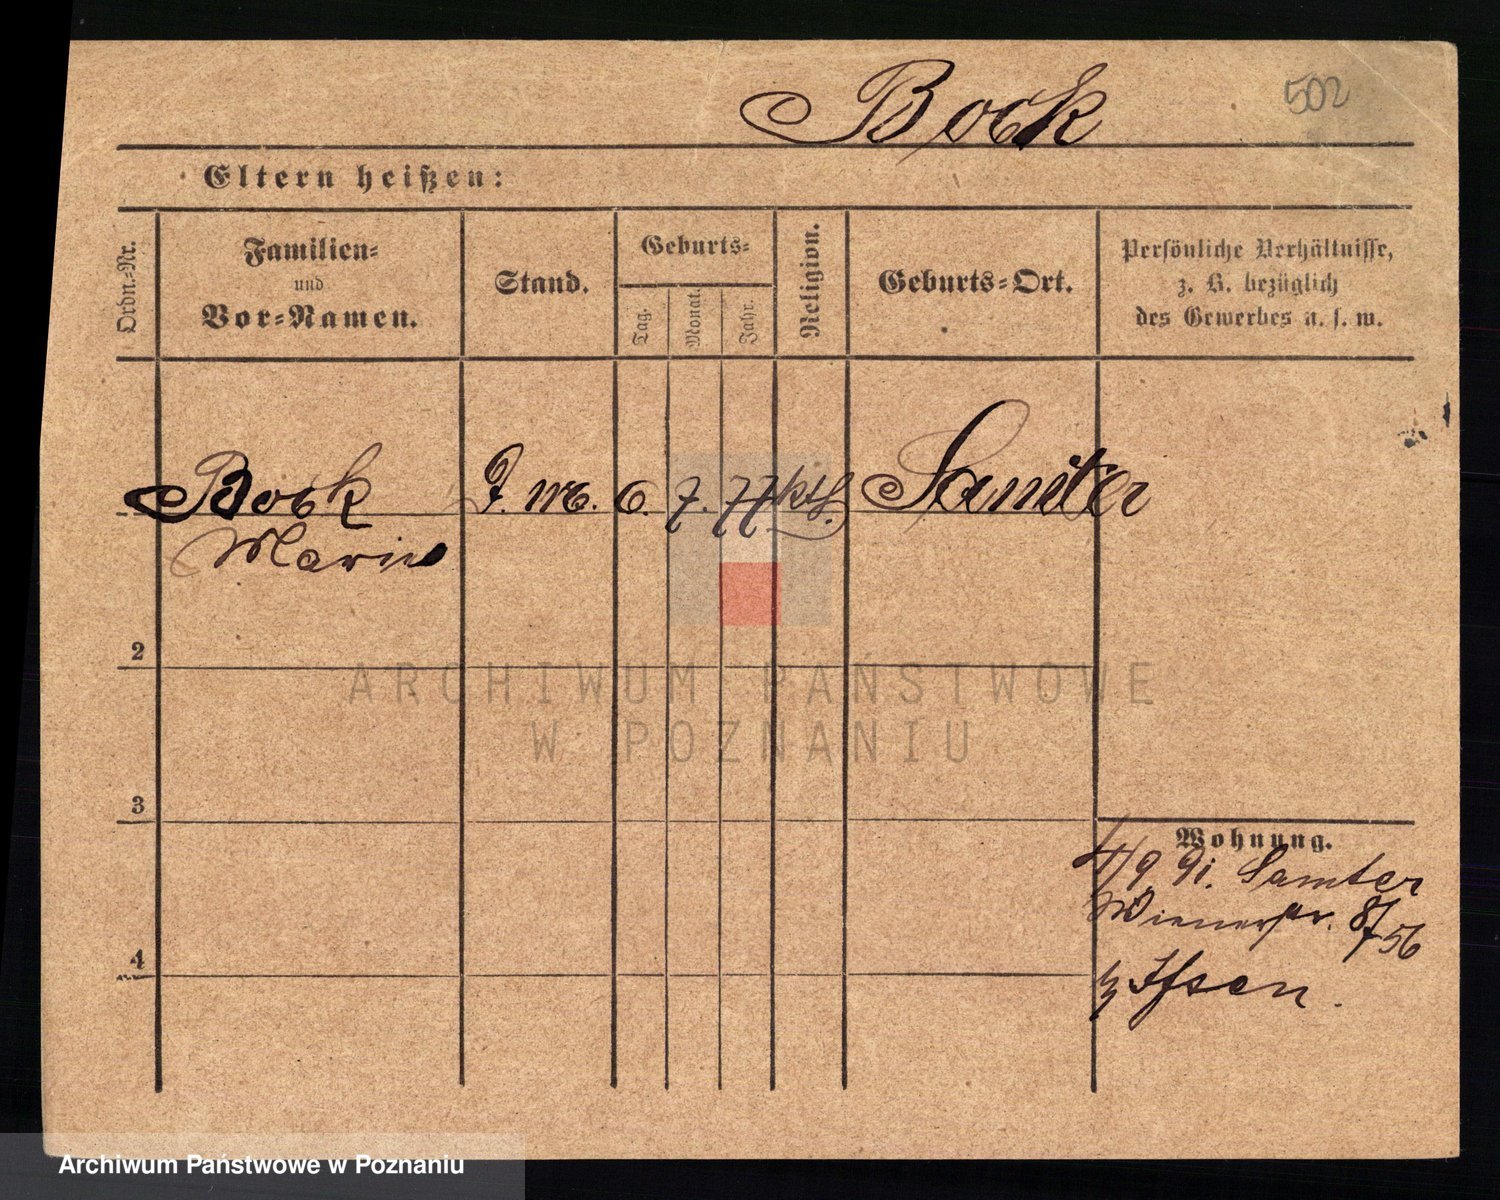 Bock
502
Eltern heißen:
Ordn.-Nr.
Familien-
und
Vor-Namen.
Stand.
Geburts-
Tag.
Monat.
Jahr.
Religion.
Geburts-Ort.
Persönliche Verhältnisse,
z. B. bezüglich
des Gewerbes u. s. w.
Bock
6. 7. 77 kth. Samter
Marie
2
3
4
Wohnung.
4/9 91. Samter
Wienerstr. 8/
56
ARCHIWUM PAŃSTWOWE
W POZNANIU
Archiwum Państwowe w Poznaniu